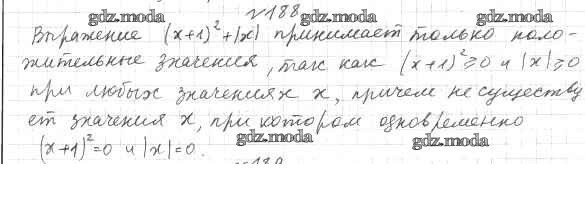 №188
gdz.moda gdz.moda gdz.moda
Выражение (x+1)²+|x| принимает только поло-
жительные значения, так как (x+1)²≥0 и |x|≥0
при любых значениях x, причем не существу
ет значения x, при котором одновременно
(x+1)²=0 и |x|=0.
gdz.moda gdz.moda